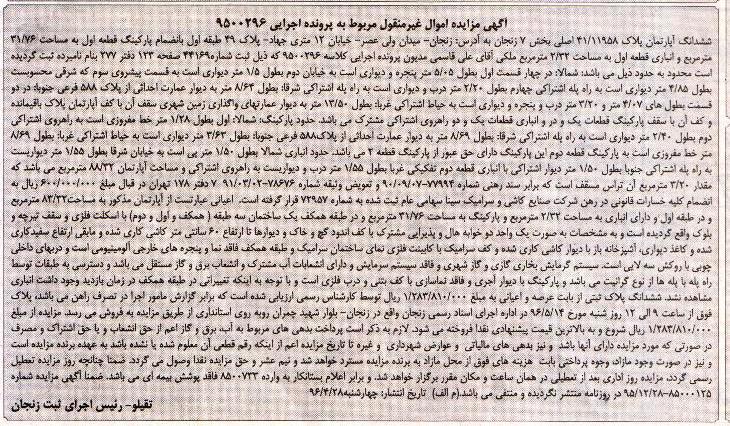 آگهی مزایده اموال غیرمنقول مربوط به پرونده اجرایی ۹۵۰۰۲۹۶
ششدانگ آپارتمان پلاک ۴۱/۱۱۹۵۸ اصلی بخش ۷ زنجان به آدرس: زنجان- میدان ولی عصر- خیابان ۱۲ متری جهاد- پلاک ۴۹ طبقه اول بانضمام پارکینگ قطعه اول به مساحت ۳۱/۷۶
مترمربع و انباری قطعه اول به مساحت ۲/۳۲ مترمربع ملکی آقای علی قاسمی مدیون پرونده اجرایی کلاسه ۹۵۰۰۲۹۶ که ذیل ثبت شماره ۴۴۱۶۹ صفحه ۱۲۳ دفتر ۲۷۷ بنام نامبرده ثبت گردیده
است محدود به حدود ذیل می باشد: شمالا: در چهار قسمت اول بطول ۵/۰۵ متر پنجره و دیواری است به خیابان دوم بطول ۱/۵ متر دیواری است به قسمت پیشروی سوم که شرقی محسوبست
بطول ۴/۸۵ متر دیواری است به راه پله اشتراکی چهارم بطول ۲/۲۰ متر درب و دیواری است به راه پله اشتراکی شرقا: بطول ۸/۶۳ متر به دیوار عمارت احداثی از پلاک ۵۸۸ فرعی جنوبا: در دو
قسمت بطول های ۴/۰۷ متر و ۳/۲۰ متر درب و پنجره و دیواری است به حیاط اشتراکی غربا: بطول ۱۳/۵۰ متر به دیوار عمارتهای واگذاری زمین شهری سقف آن با کف آپارتمان پلاک باقیمانده
و کف آن با سقف پارکینگ قطعات یک و دو و انباری قطعات یک و دو راهروی اشتراکی مشترک می باشد. حدود پارکینگ: شمالا: اول بطول ۱/۲۸ متر خط مفروزی است به راهروی اشتراکی
دوم بطول ۲/۴۰ متر دیواری است به راه پله اشتراکی شرقا: بطول ۸/۶۹ متر به دیوار عمارت احداثی از پلاک ۵۸۸ فرعی جنوبا: بطول ۳/۶۲ متر دیواری است به حیاط اشتراکی غربا: بطول ۸/۶۹
متر خط مفروزی است به پارکینگ قطعه دوم این پارکینگ دارای حق عبور از پارکینگ قطعه ۲ می باشد. حدود انباری شمالا بطول ۱/۵۰ متر پی است به خیابان شرقا بطول ۱/۵۵ متر دیواریست
به راه پله اشتراکی جنوبا بطول ۱/۵۰ متر دیوار اشتراکی با انباری قطعه دوم تفکیکی غربا بطول ۱/۵۵ متر درب و دیواریست به راهروی اشتراکی و مساحت آپارتمان ۸۸/۳۲ مترمربع می باشد که
مقدار ۳/۲۰ مترمربع آن تراس مسقف است که برابر سند رهنی شماره ۷۷۹۹۴-۹۰/۰۹/۰۷ و تعویض وثیقه شماره ۷۸۶۷۶-۹۱/۰۳/۰۲ ۷ دفتر ۱۷۸ تهران در قبال مبلغ ۶۰۰/۰۰۰/۰۰۰ ریال به
انضمام کلیه خسارات قانونی در رهن شرکت صنایع کاشی و سرامیک سینا سهامی عام ثبت شده به شماره ۷۲۹۵۷ قرار گرفته است. اعیانی عبارتست از آپارتمان مذکور به مساحت ۸۳/۳۲ مترمربع
و در طبقه اول و دارای انباری به مساحت ۲/۳۲ مترمربع و پارکینگ به مساحت ۳۱/۷۶ مترمربع و در طبقه همکف یک ساختمان سه طبقه ( همکف و اول و دوم) با اسکلت فلزی و سقف تیرچه و
بلوک واقع گردیده است و به مشخصات به صورت یک واحد دو خوابه هال و پذیرایی مشترک با کف اندود گچ و خاک و دیوارها تا ارتفاع ۶۰ سانتی متر کاشی کاری شده و مابقی ارتفاع سفیدکاری
شده و کاغذ دیواری، آشپزخانه باز با دیوار کاشی کاری شده و کف سرامیک با کابینت فلزی نمای ساختمان سرامیک و طبقه همکف فاقد نما و پنجره های خارجی آلومینیومی است و دربهای داخلی
چوبی با روکش سه لایی است. سیستم گرمایش بخاری گازی و گاز شهری و فاقد سیستم سرمایش و دارای انشعابات آب مشترک و انشعاب برق و گاز مستقل می باشد و دسترسی به طبقات توسط
راه پله با پله ها از نوع گرانیت می باشد و پارکینگ با دیوار آجری و فاقد نماسازی با کف بتنی و درب فلزی است و با توجه به اینکه تغییراتی در طبقه همکف در زمان بازدید وجود داشت انباری
مشاهده نشد. ششدانگ پلاک ثبتی از بابت عرصه و اعیانی به مبلغ ۱/۲۸۳/۸۱۰/۰۰۰ ریال توسط کارشناس رسمی ارزیابی شده است که برابر گزارش مامور اجرا در تصرف راهن می باشد، پلاک
فوق از ساعت ۹ الی ۱۲ روز شنبه مورخ ۹۶/۵/۱۴ در اداره اجرای اسناد رسمی زنجان واقع در زنجان- بلوار شهید چمران روبه روی استانداری از طریق مزایده به فروش می رسد. مزایده از مبلغ
۱/۲۸۳/۸۱۰/۰۰۰ ریال شروع و به بالاترین قیمت پیشنهادی نقدا فروخته می شود. لازم به ذکر است پرداخت بدهی های مربوط به آب، برق و گاز اعم از حق انشعاب و یا حق اشتراک و مصرف
در صورتی که مورد مزایده دارای آنها باشد و نیز بدهی های مالیاتی و عوارض شهرداری و غیره تا تاریخ مزایده اعم از اینکه رقم قطعی آن معلوم شده یا نشده باشد به عهده برنده مزایده است
و نیز در صورت وجود مازاد، وجوه پرداختی بابت هزینه های فوق از محل مازاد به برنده مزایده مسترد خواهد شد و نیم عشر و حق مزایده نقدا وصول می گردد. ضمنا چنانچه روز مزایده تعطیل
رسمی گردد، مزایده روز اداری بعد از تعطیلی در همان ساعت و مکان مقرر برگزار خواهد شد. و برابر اعلام بستانکار به وارده ۸۵۰۰۷۳۳ فاقد پوشش بیمه ای می باشد. ضمنا آگهی مزایده شماره
۸۵۰۰۰۱۲۵-۹۵/۱۲/۲۸ در روزنامه منتشر نگردیده و منتفی می باشد.(م الف) تاریخ انتشار: چهارشنبه ۹۶/۴/۲۸
تقیلو- رئیس اجرای ثبت زنجان